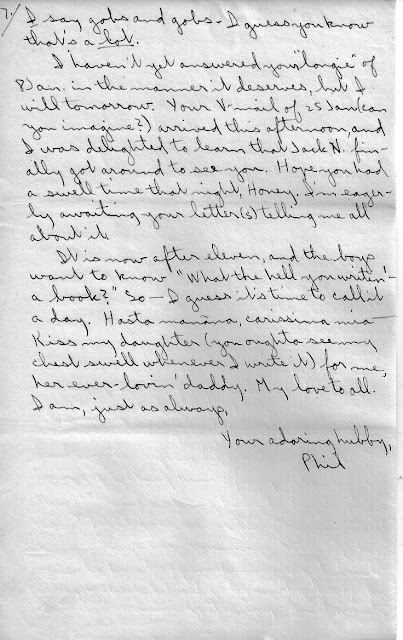 7./ I say gobs and gobs - I guess you know
that's a lot.
I haven't yet answered your "longie" of
8 Jan. in the manner it deserves, but I
will tomorrow. Your V-mail of 25 Jan (can
you imagine?) arrived this afternoon, and
I was delighted to learn that Jack N. fin-
ally got around to see you. Hope you had
a swell time that night, Honey. I'm eager-
ly awaiting your letter(s) telling me all
about it.
It is now after eleven, and the boys
want to know "What the hell you writin' -
a book?" So - I guess it's time to call it
a day. Hasta mañana, carissima mia -
Kiss my daughter (you oughta see my
chest swell whenever I write it) for me,
her ever-lovin' daddy. My love to all.
I am, just as always,
Your adoring hubby,
Phil